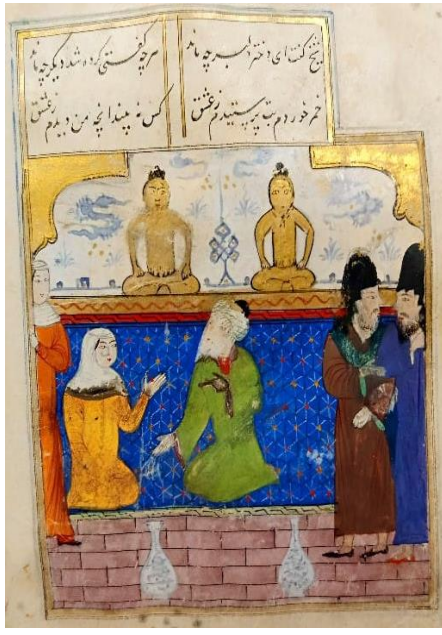 شیخ گفت ای دختر دلبر چه ماند هرچه گفتی کرده شد دیگر چه ماند
خمر خوردم بت پرستیدم ز عشق کس نه بیند آنچه من دیدم ز عشق